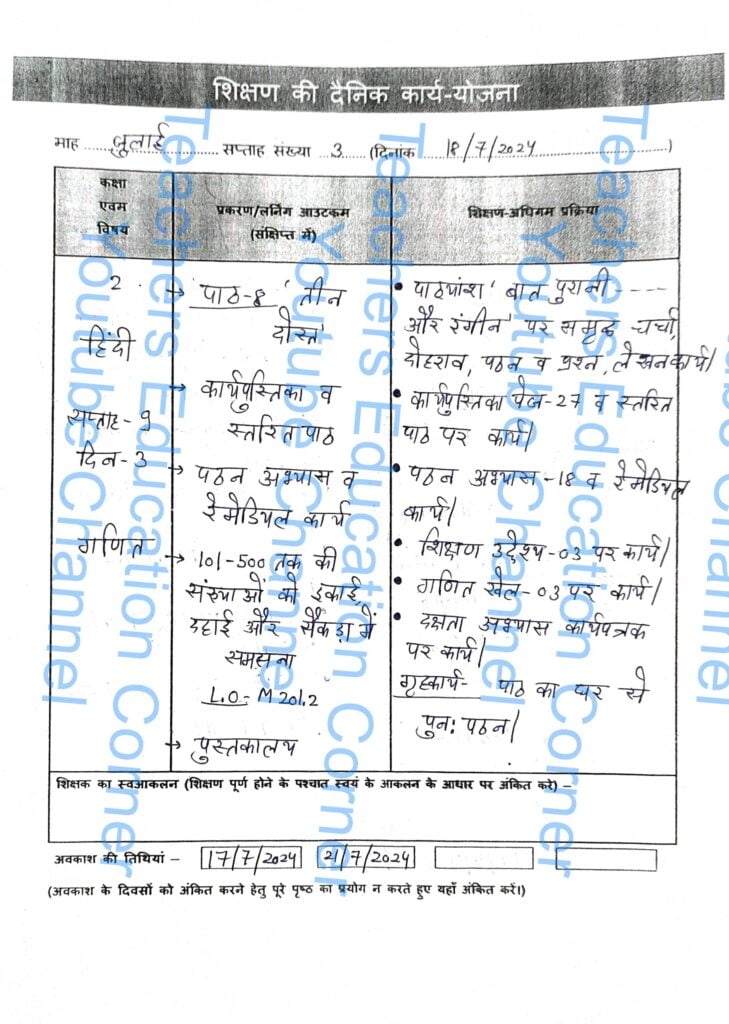 शिक्षण की दैनिक कार्य-योजना
माह जुलाई सप्ताह संख्या 3 (दिनांक 18/7/2024)
कक्षा एवम विषय
प्रकरण/लर्निंग आउटकम (संक्षिप्त में)
शिक्षण-अधिगम प्रक्रिया
2
हिंदी
सप्ताह- 9
दिन- 3
गणित
→ पाठ-8 'तीन
दोस्त'
→ कार्यपुस्तिका व
स्तरित पाठ
→ पठन अभ्यास व
रेमेडियल कार्य
→ 101-500 तक की
संख्याओं को इकाई,
दहाई और सैकड़ा में
समझना
L.O.- M201.2
→ पुस्तकालय
• पाठ्यांश 'बात पुरानी ----
और रंगीन' पर समृद्ध चर्चा,
दोहराव, पठन व प्रश्न, लेखनकार्य।
• कार्यपुस्तिका पेज-27 व स्तरित
पाठ पर कार्य।
• पठन अभ्यास -18 व रेमेडियल
कार्य।
• शिक्षण उद्देश्य-03 पर कार्य।
• गणित खेल-03 पर कार्य।
• दक्षता अभ्यास कार्यपत्रक
पर कार्य।
गृहकार्य- पाठ का घर से
पुनः पठन।
शिक्षक का स्वआकलन (शिक्षण पूर्ण होने के पश्चात स्वयं के आकलन के आधार पर अंकित करे) –
अवकाश की तिथियां – 17/7/2024 21/7/2024
(अवकाश के दिवसों को अंकित करने हेतु पूरे पृष्ठ का प्रयोग न करते हुए यहाँ अंकित करें।)
Teachers Education Corner
Youtube Channel
Teachers Education Corner
Youtube Channel
Teachers Education Corner
Youtube Channel